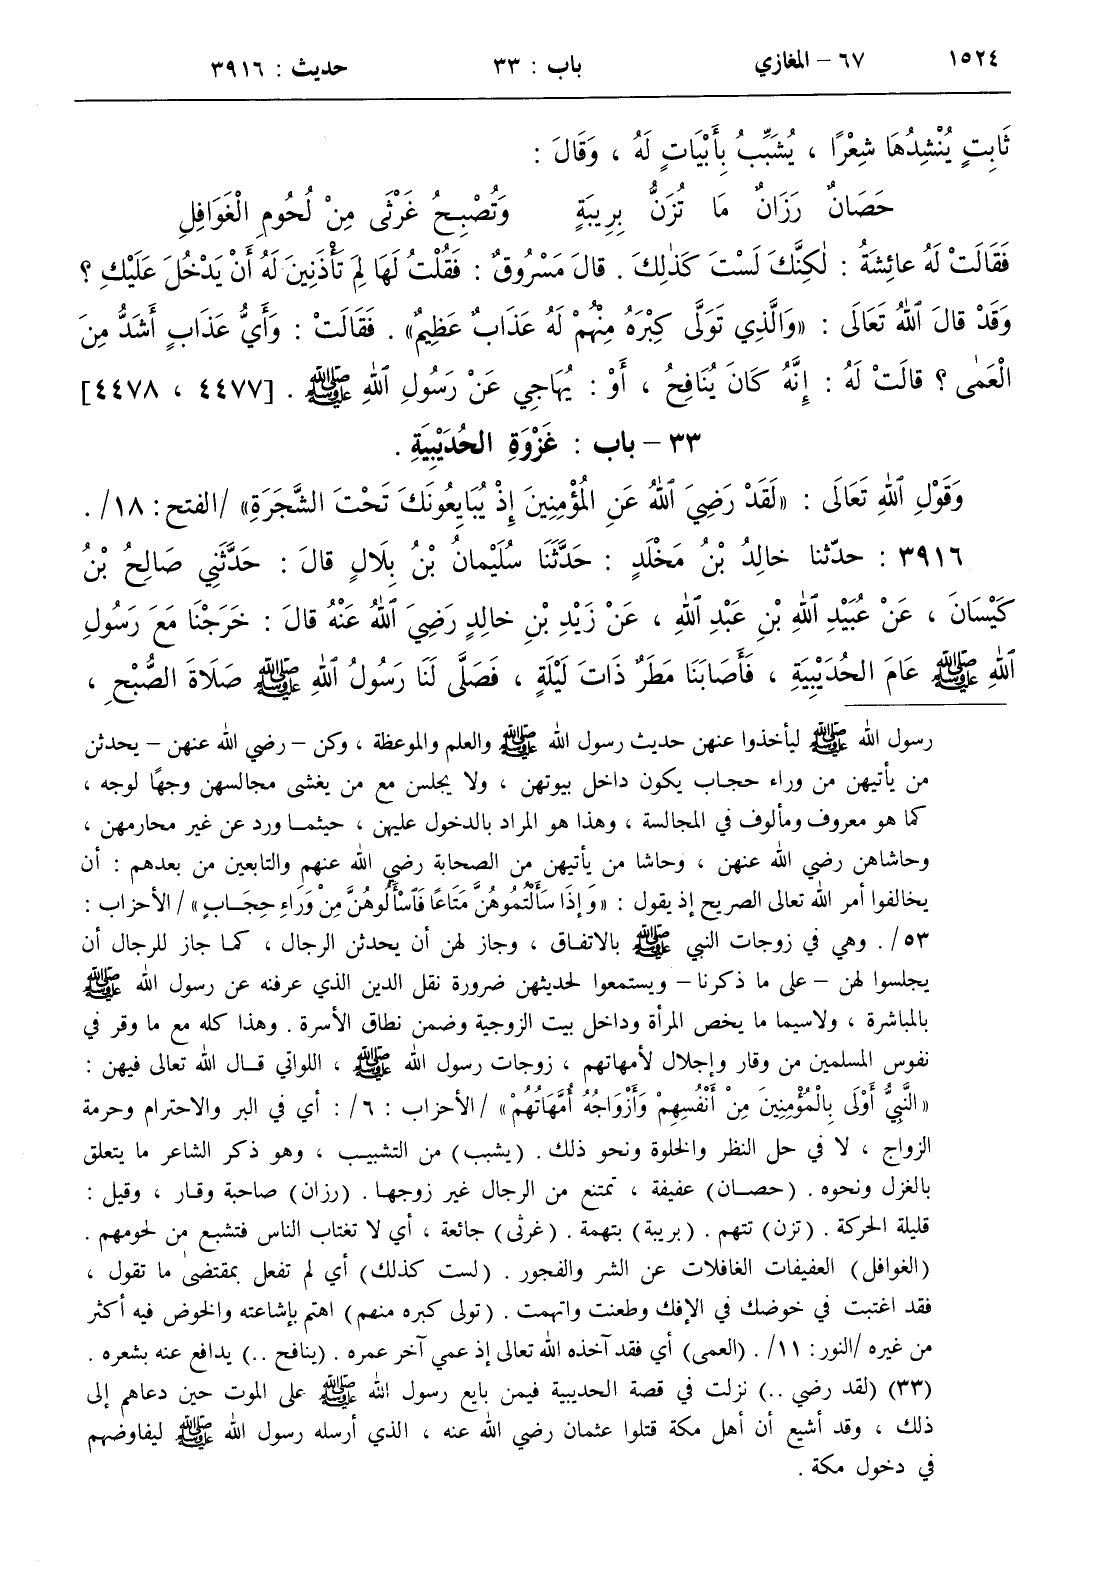 ١٥٢٤ ٦٧ – المغازي باب : ٣٣ حديث : ٣٩١٦
ثَابِتٍ يُنْشِدُهَا شِعْرًا ، يُشَبِّبُ بِأَبْيَاتٍ لَهُ ، وَقَالَ :
حَصَانٌ رَزَانٌ مَا تُزَنُّ بِرِيبَةٍ وَتُصْبِحُ غَرْثَى مِنْ لُحُومِ الْغَوَافِلِ
فَقَالَتْ لَهُ عائِشَةُ : لٰكِنَّكَ لَسْتَ كَذٰلِكَ . قالَ مَسْرُوقٌ : فَقُلْتُ لَهَا لِمَ تَأْذَنِينَ لَهُ أَنْ يَدْخُلَ عَلَيْكِ ؟
وَقَدْ قالَ ٱللهُ تَعَالَى : «وَالَّذِي تَوَلَّى كِبْرَهُ مِنْهُمْ لَهُ عَذَابٌ عَظِيمٌ» . فَقَالَتْ : وَأَيُّ عَذَابٍ أَشَدُّ مِنَ
الْعَمٰى ؟ قالَتْ لَهُ : إِنَّهُ كَانَ يُنَافِحُ ، أَوْ : يُهَاجِي عَنْ رَسُولِ ٱللهِ ﷺ . [٤٤٧٧ ، ٤٤٧٨]
٣٣ – باب : غَزْوَةِ الحُدَيْبِيَةِ .
وَقَوْلِ ٱللهِ تَعَالَى : «لَقَدْ رَضِيَ ٱللهُ عَنِ المُؤْمِنِينَ إِذْ يُبَايِعُونَكَ تَحْتَ الشَّجَرَةِ» /الفتح: ١٨/ .
٣٩١٦ : حدّثنا خالِدُ بْنُ مَخْلَدٍ : حَدَّثَنَا سُلَيْمانُ بْنُ بِلَالٍ قالَ : حَدَّثَنِي صَالِحُ بْنُ
كَيْسَانَ ، عَنْ عُبَيْدِ ٱللهِ بْنِ عَبْدِ ٱللهِ ، عَنْ زَيْدِ بْنِ خالِدٍ رَضِيَ ٱللهُ عَنْهُ قالَ : خَرَجْنَا مَعَ رَسُولِ
ٱللهِ ﷺ عَامَ الحُدَيْبِيَةِ ، فَأَصَابَنَا مَطَرٌ ذَاتَ لَيْلَةٍ ، فَصَلَّى لَنَا رَسُولُ ٱللهِ ﷺ صَلَاةَ الصُّبْحِ ،
رسول الله ﷺ ليأخذوا عنهن حديث رسول الله ﷺ والعلم والموعظة ، وكن – رضي الله عنهن – يحدثن
من يأتيهن من وراء حجاب يكون داخل بيوتهن ، ولا يجلسن مع من يغشى مجالسهن وجهًا لوجه ،
كما هو معروف ومألوف في المجالسة ، وهذا هو المراد بالدخول عليهن ، حيثما ورد عن غير محارمهن ،
وحاشاهن رضي الله عنهن ، وحاشا من يأتيهن من الصحابة رضي الله عنهم والتابعين من بعدهم : أن
يخالفوا أمر الله تعالى الصريح إذ يقول : «وَإِذَا سَأَلْتُمُوهُنَّ مَتَاعًا فَٱسْأَلُوهُنَّ مِنْ وَرَاءِ حِجَابٍ» / الأحزاب :
٥٣/ . وهي في زوجات النبي ﷺ بالاتفاق ، وجاز لهن أن يحدثن الرجال ، كما جاز للرجال أن
يجلسوا لهن – على ما ذكرنا – ويستمعوا لحديثهن ضرورة نقل الدين الذي عرفنه عن رسول الله ﷺ
بالمباشرة ، ولاسيما ما يخص المرأة وداخل بيت الزوجية وضمن نطاق الأسرة . وهذا كله مع ما وقر في
نفوس المسلمين من وقار وإجلال لأمهاتهم ، زوجات رسول الله ﷺ ، اللواتي قال الله تعالى فيهن :
«النَّبِيُّ أَوْلَى بِالْمُؤْمِنِينَ مِنْ أَنْفُسِهِمْ وَأَزْوَاجُهُ أُمَّهَاتُهُمْ» /الأحزاب : ٦/ : أي في البر والاحترام وحرمة
الزواج ، لا في حل النظر والخلوة ونحو ذلك . (يشبب) من التشبيب ، وهو ذكر الشاعر ما يتعلق
بالغزل ونحوه . (حصان) عفيفة ، تمتنع من الرجال غير زوجها . (رزان) صاحبة وقار ، وقيل :
قليلة الحركة . (تزن) تتهم . (بريبة) بتهمة . (غرثى) جائعة ، أي لا تغتاب الناس فتشبع من لحومهم .
(الغوافل) العفيفات الغافلات عن الشر والفجور . (لست كذلك) أي لم تفعل بمقتضى ما تقول ،
فقد اغتبت في خوضك في الإفك وطعنت واتهمت . (تولى كبره منهم) اهتم بإشاعته والخوض فيه أكثر
من غيره /النور: ١١/ . (العمى) أي فقد آخذه الله تعالى إذ عمي آخر عمره . (ينافح ..) يدافع عنه بشعره .
(٣٣) (لقد رضي ..) نزلت في قصة الحديبية فيمن بايع رسول الله ﷺ على الموت حين دعاهم إلى
ذلك ، وقد أشيع أن أهل مكة قتلوا عثمان رضي الله عنه ، الذي أرسله رسول الله ﷺ ليفاوضهم
في دخول مكة .